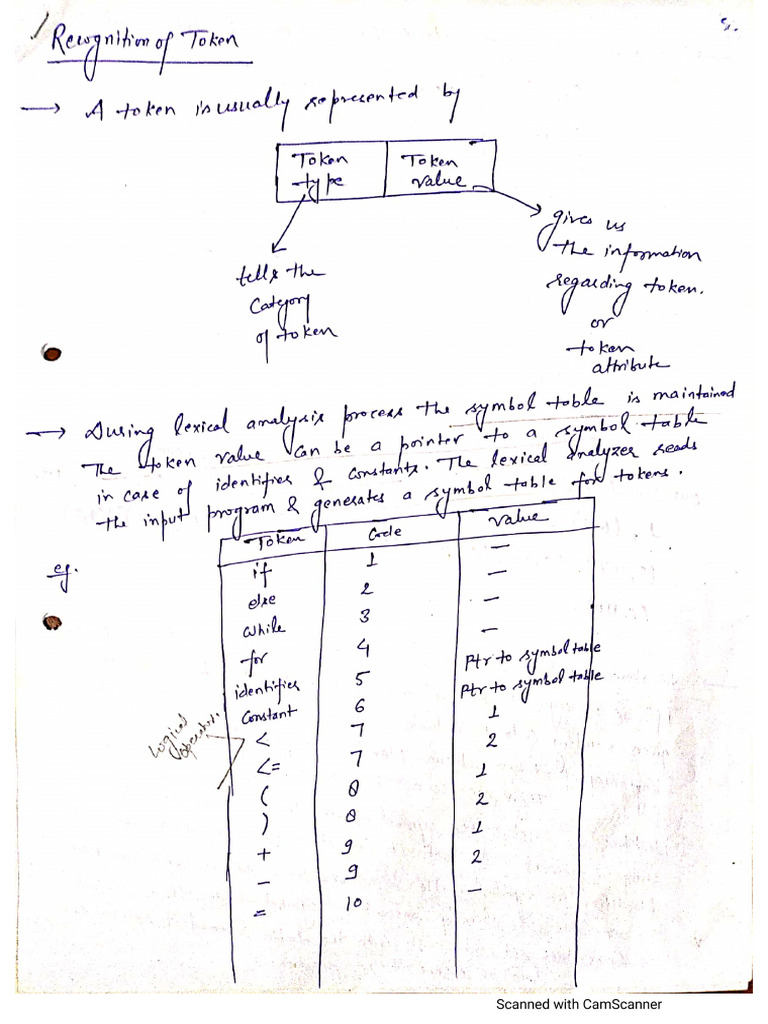 5.
Recognition of Token
→ A token is usually represented by
Token type | Token value
tells the
Category
of token
gives us
the information
regarding token.
or
token
attribute
→ During lexical analysis process the symbol table is maintained
The token value can be a pointer to a symbol table
in case of identifier & constants. The lexical analyzer reads
the input program & generates a symbol table for tokens.
eg.
Token | Code | Value
if | 1 | —
else | 2 | —
while | 3 | —
for | 4 | —
identifier | 5 | Ptr to symbol table
Constant | 6 | Ptr to symbol table
< | 7 | 1
<= | 7 | 2
( | 8 | 1
) | 8 | 2
+ | 9 | 1
- | 9 | 2
= | 10 | —
Logical
operator.
Scanned with CamScanner